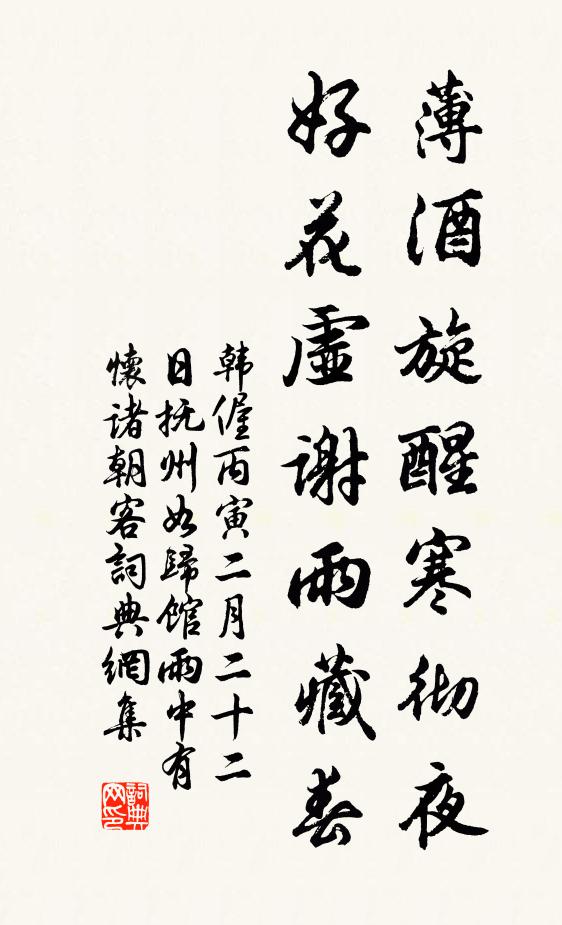 薄酒旋醒寒彻夜
好花虛谢雨藏春
韩偓丙寅二月二十二
日抚州如歸馆雨中有
懷诸朝客詞典網集
詞典网印